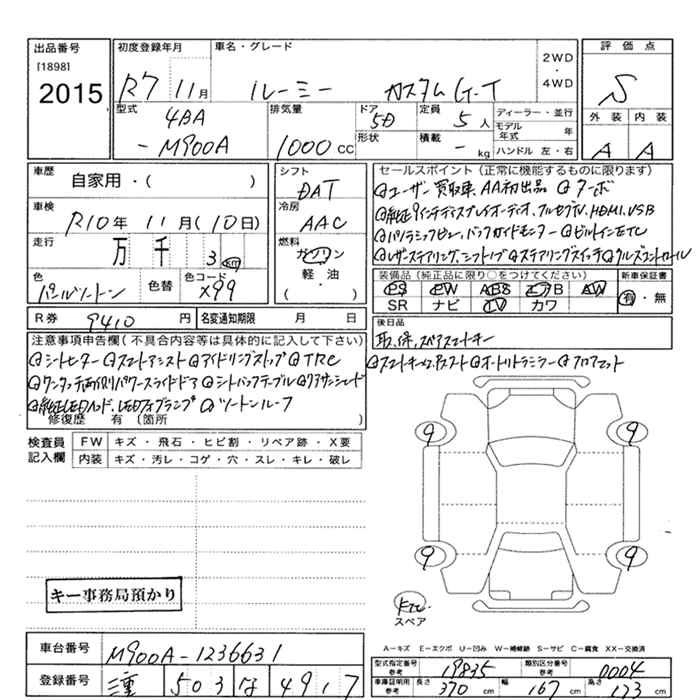 出品番号 初度登録年月 車名・グレード 2WD ・ 4WD 評価点
[1898]
2015 R7 11月 ルーミー カスタムG-T S
型式 4BA -M900A 排気量 1000 CC ドア 5D 形状 定員 5人 積載 - kg ディーラー・並行 モデル年式 年 ハンドル 左・右 外装 A 内装 A
車歴 自家用・( ) シフト DAT セールスポイント(正常に機能するものに限ります)
車検 R10年 11月(10日) 冷房 AAC
走行 万 千 3 km 燃料 ガソリン 軽・油 ・( )
色 パールツートン 色替 色コード X99
ユーザー買取車、AA初出品 ターボ
純正9インチディスプレイオーディオ、フルセグTV、HDMI、USB
パノラミックビュー、バックガイドモニター ビルトインETC
レザーステアリング、シフトノブ ステアリングスイッチ クルーズコントロール
装備品(純正品に限り○をつけてください) 新車保証書
PS PW ABS エアB AW 有・無
SR ナビ TV カワ
R券 9410 円 名変通知期限 月 日 後日品
取、保、スペアスマートキー
注意事項申告欄(不具合内容等は具体的に記入して下さい)
シートヒーター スマートアシスト アイドリングストップ TRC
ワンタッチ両側パワースライドドア シートバックテーブル
純正LEDヘッド、LEDフォグランプ ツートンルーフ
修復歴 有(箇所 )
オートリトラミラー フロアマット
検査員記入欄 FW キズ・飛石・ヒビ割・リペア跡・X要
内装 キズ・汚レ・コゲ・穴・スレ・キレ・破レ
9 9
9 9
キー事務局預かり
スペア
A-キズ E-エクボ U-凹み W-補修跡 S-サビ C-腐食 XX-交換済
車台番号 M900A-1236631
型式指定番号 参考 19835 類別区分番号 参考 0004
登録番号 三重 503 な 4917
車庫証明用 参考 長さ 370 cm 幅 167 cm 高さ cm